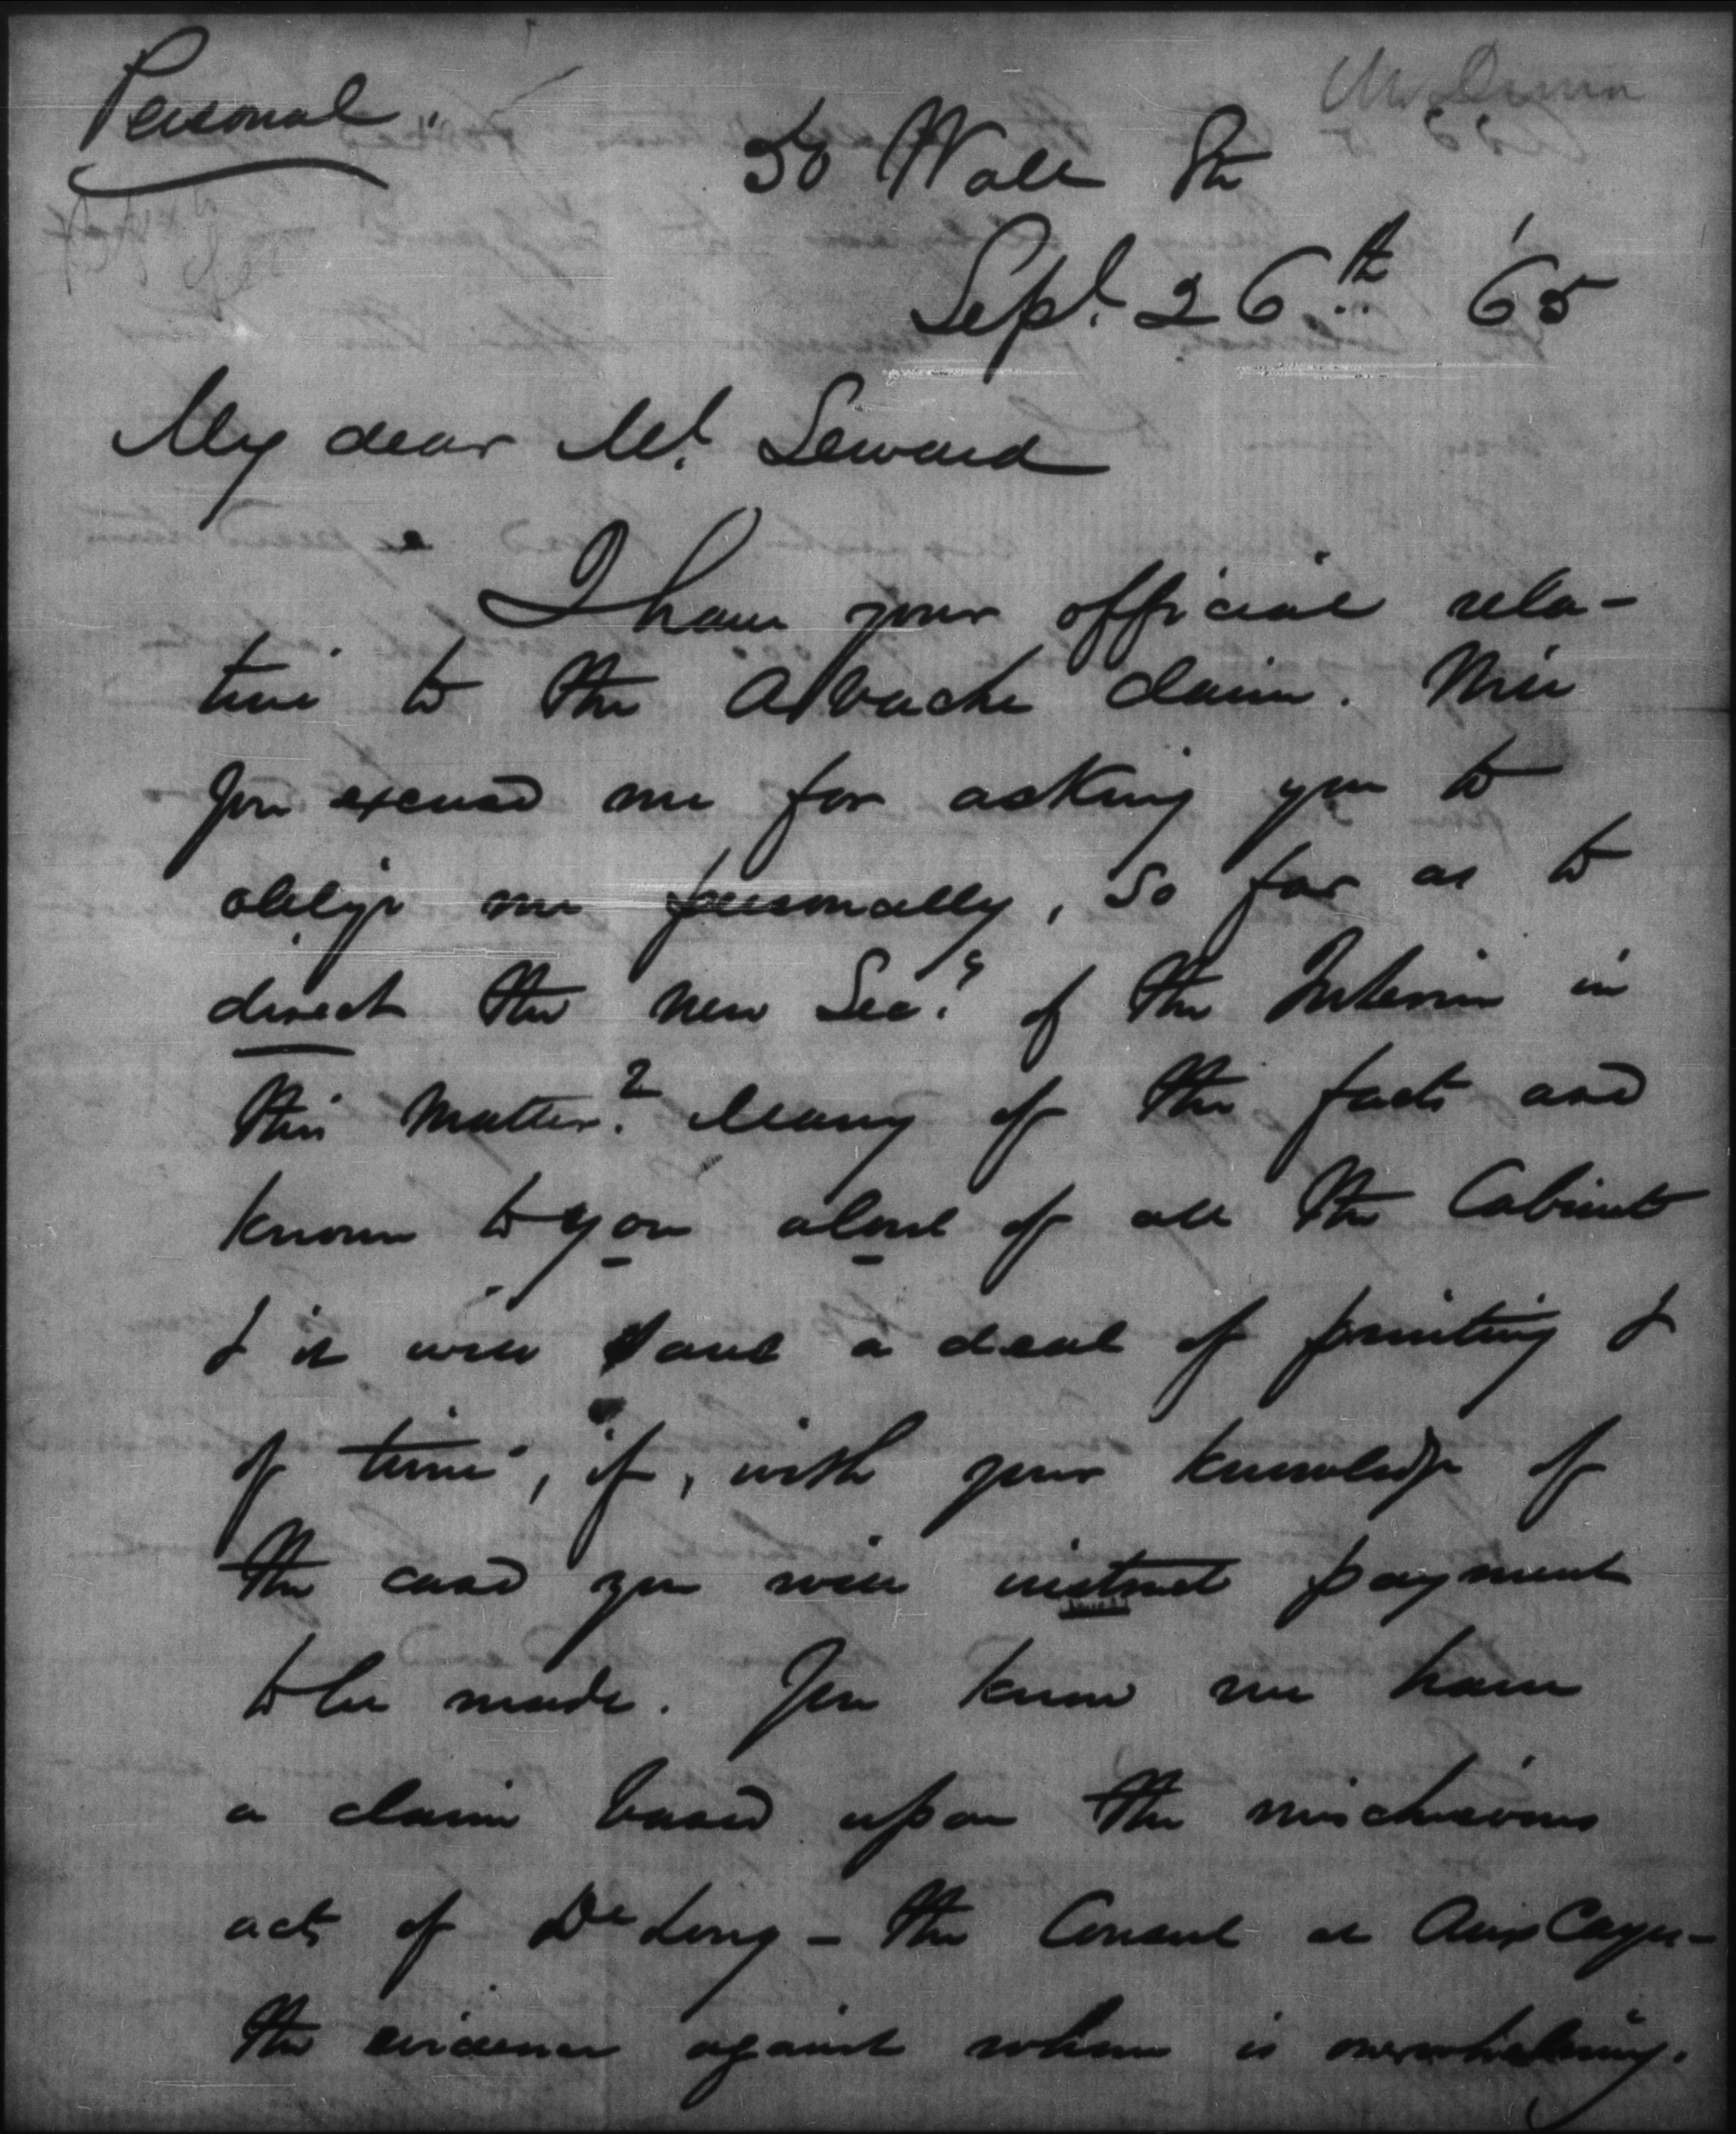 Personal.
50 Wall St
Sept. 26th '65
My dear Mr. Seward
I have your official rela-
tive to the claim. Will
you excuse me for asking you to
oblige me personally, so far as to
direct the new Secy. of the Interior in
this matter? Many of the facts are
known to you alone of all the Cabinet
& it will save a deal of printing &
of time, if, with your knowledge of
the case you will instruct payment
to be made. You know we have
a claim based upon the mischievous
acts of De Long - the Consul at Aux Cayes -
the evidence against whom is overwhelming.